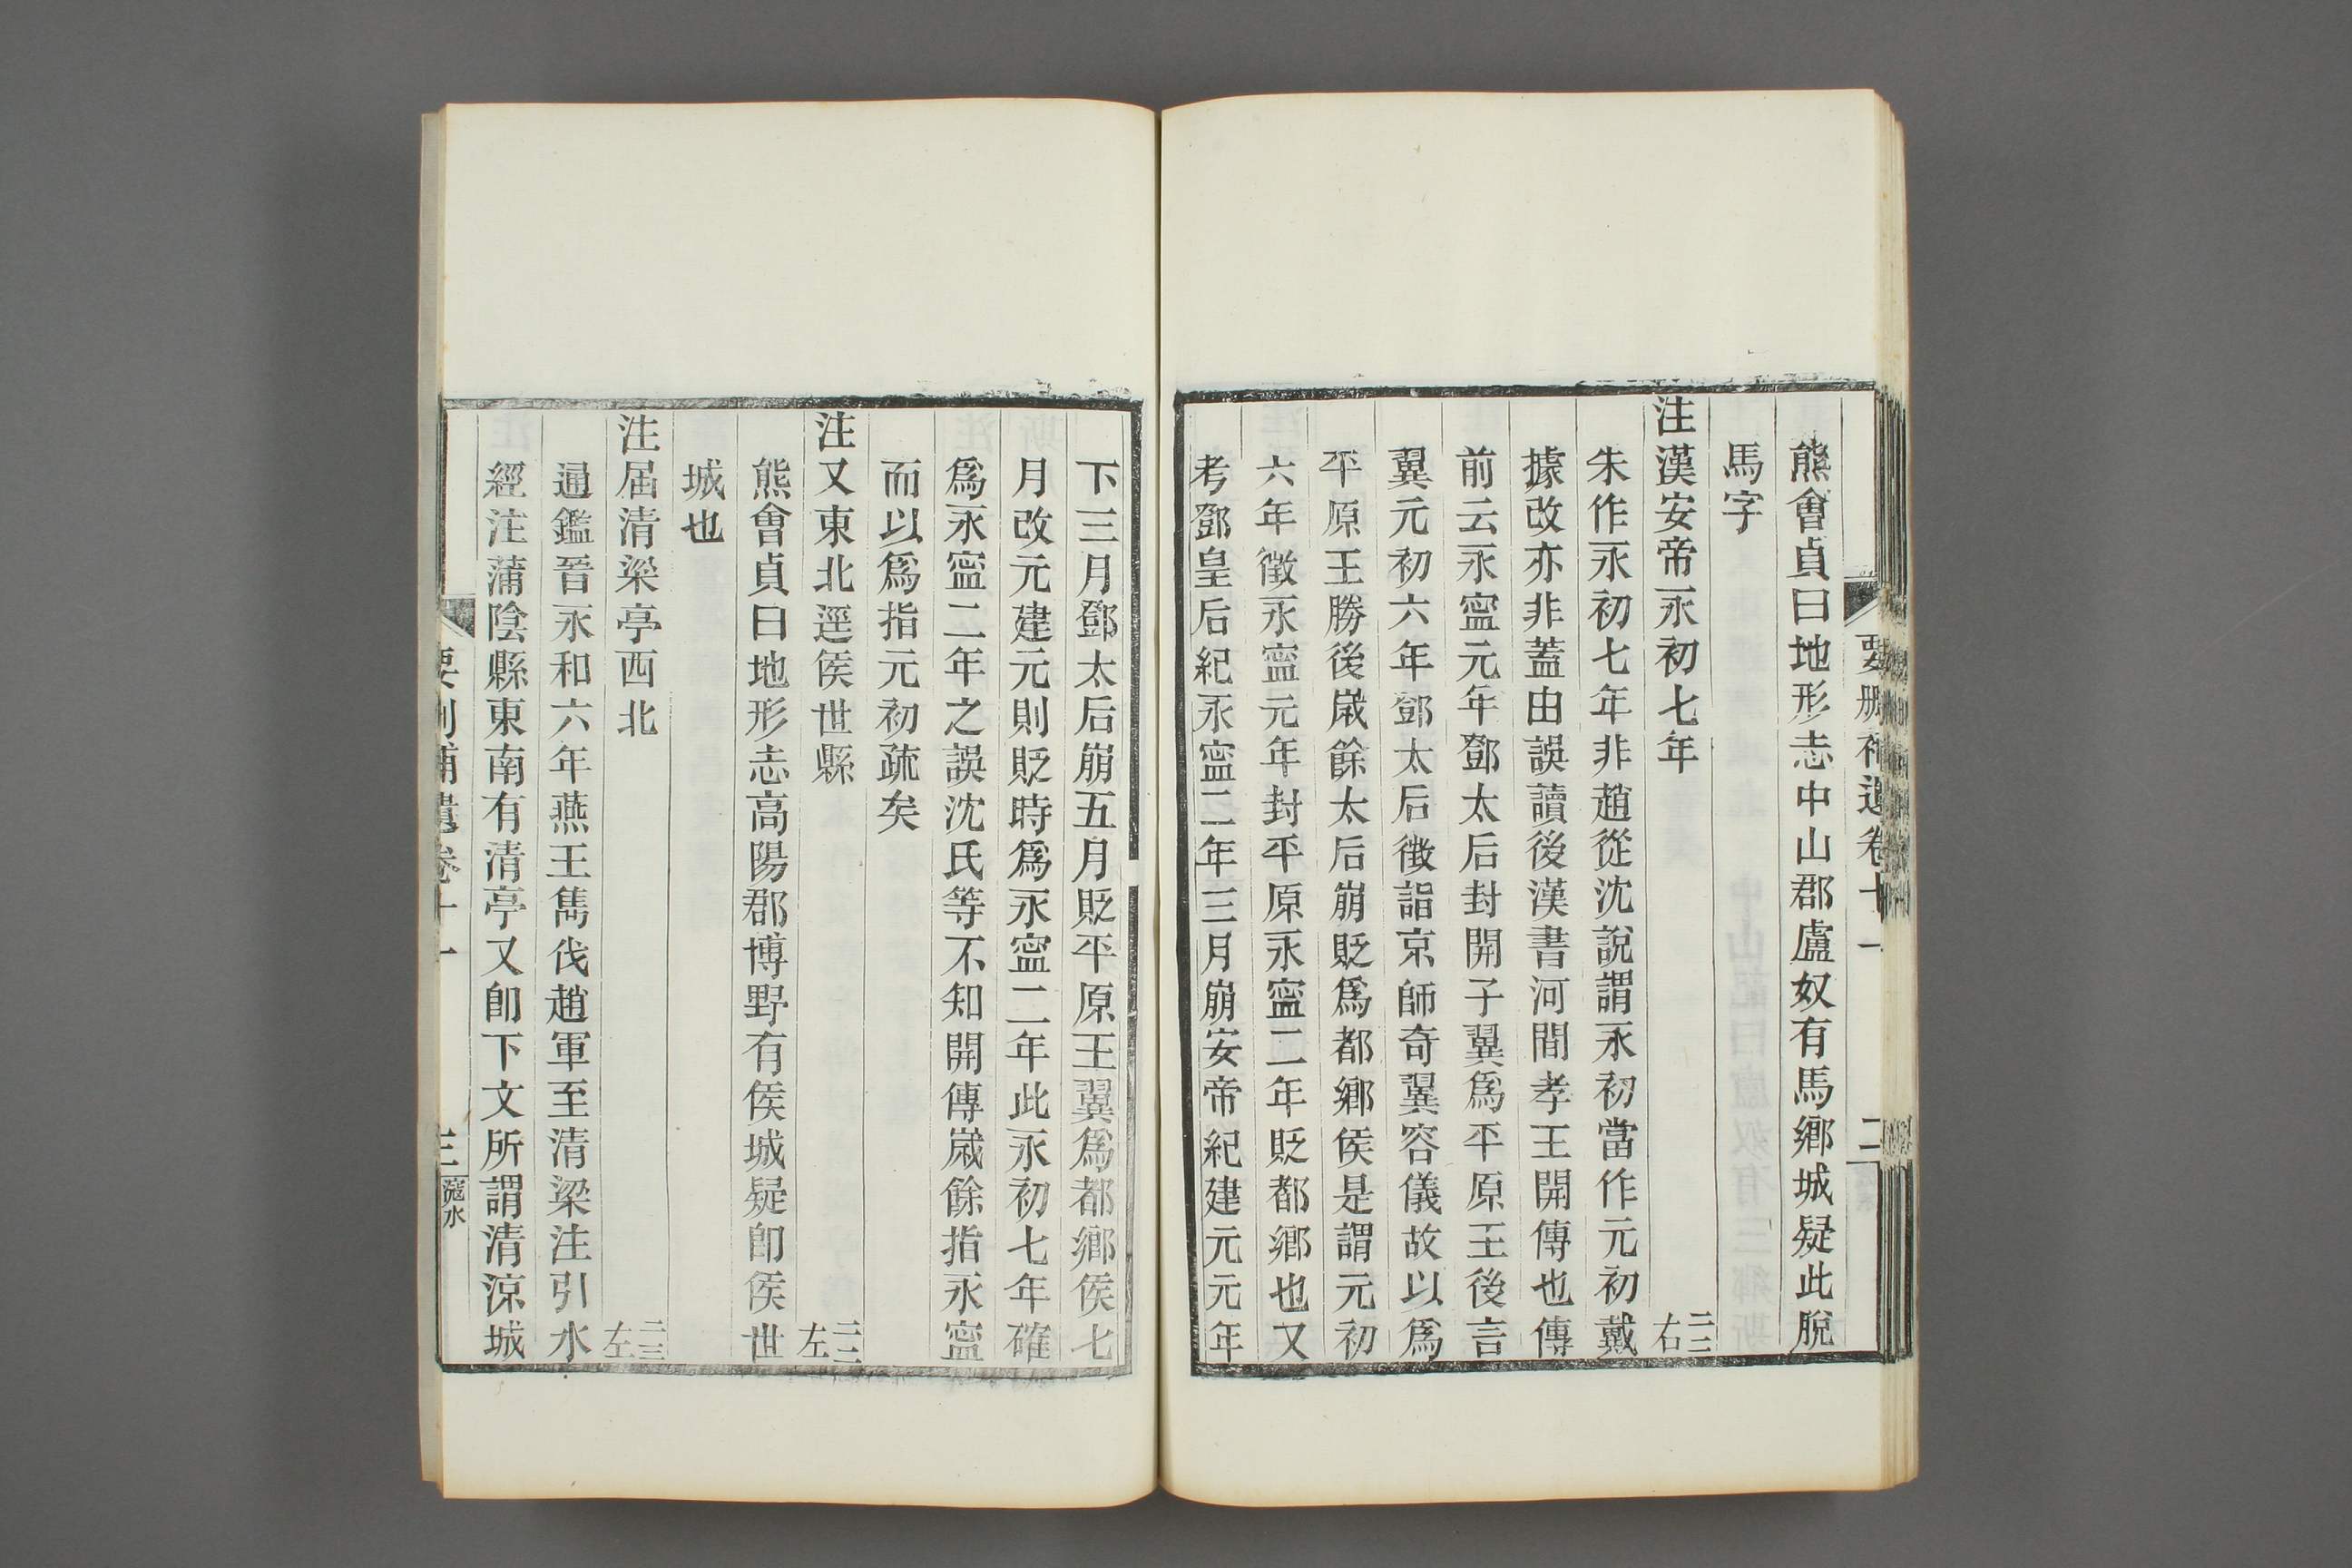 要刪補遺卷十一 二
熊會貞曰地形志中山郡盧奴有馬鄉城疑此脫
馬字
注漢安帝永初七年 二二右
朱作永初七年非趙從沈說謂永初當作元初戴
據改亦非蓋由誤讀後漢書河間孝王開傳也傳
前云永寍元年鄧太后封開子翼爲平原王後言
翼元初六年鄧太后徵詣京師奇翼容儀故以爲
平原王勝後歲餘太后崩貶爲都鄉侯是謂元初
六年徵永寍元年封平原永寍二年貶都鄉也又
考鄧皇后紀永寍二年三月崩安帝紀建元元年
下三月鄧太后崩五月貶平原王翼爲都鄉侯七
月改元建元則貶時爲永寍二年此永初七年確
爲永寍二年之誤沈氏等不知開傳歲餘指永寍
而以爲指元初疏矣
注又東北逕侯世縣 二二左
熊會貞曰地形志高陽郡博野有侯城疑卽侯世
城也
注屆清梁亭西北 二三左
通鑑晉永和六年燕王雋伐趙軍至清梁注引水
經注蒲陰縣東南有清亭又卽下文所謂清涼城
要刪補遺卷十一 三 滱水